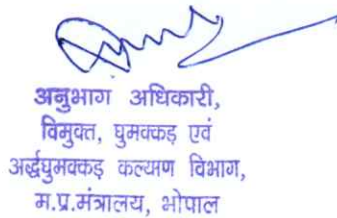 अनुभाग अधिकारी,
विमुक्त, घुमक्कड़ एवं
अर्द्धघुमक्कड़ कल्याण विभाग,
म.प्र.मंत्रालय, भोपाल